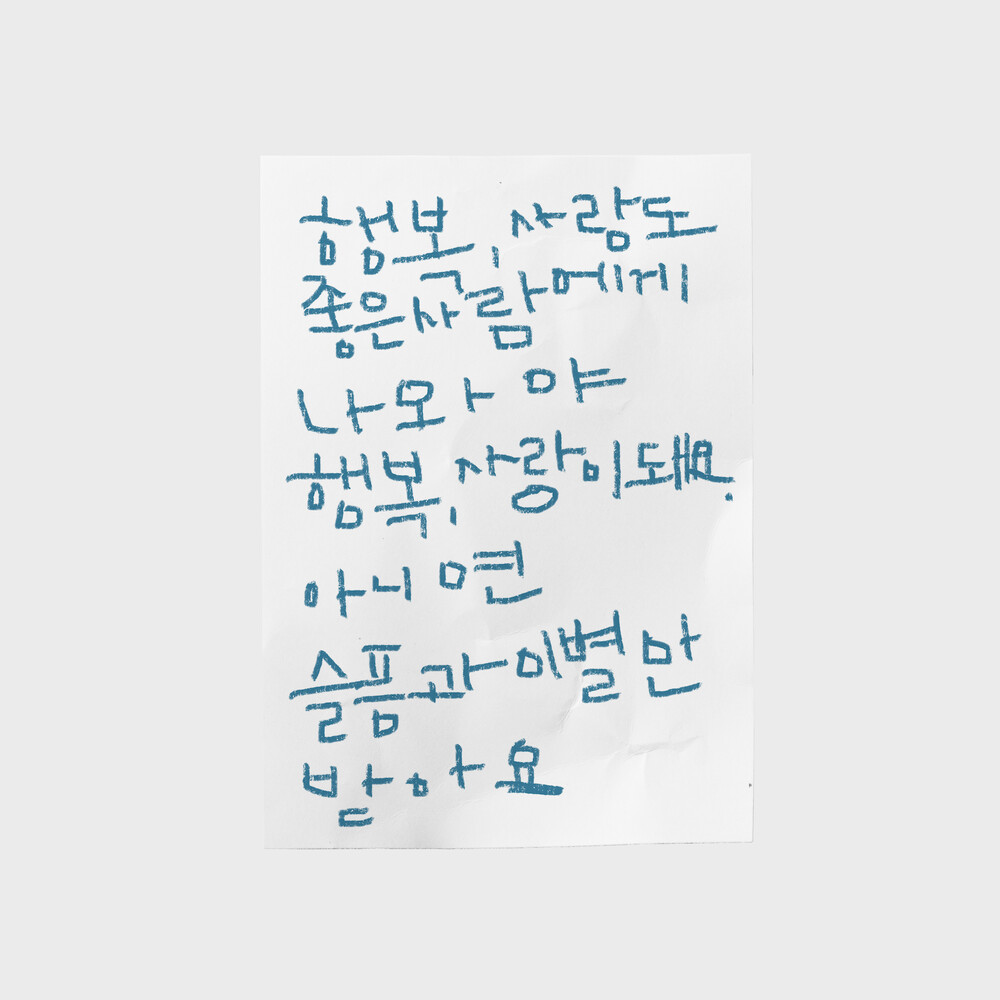 행복, 사랑도
좋은사람에게
나와야
행복, 사랑이돼요.
아니면
슬픔과이별만
받아요